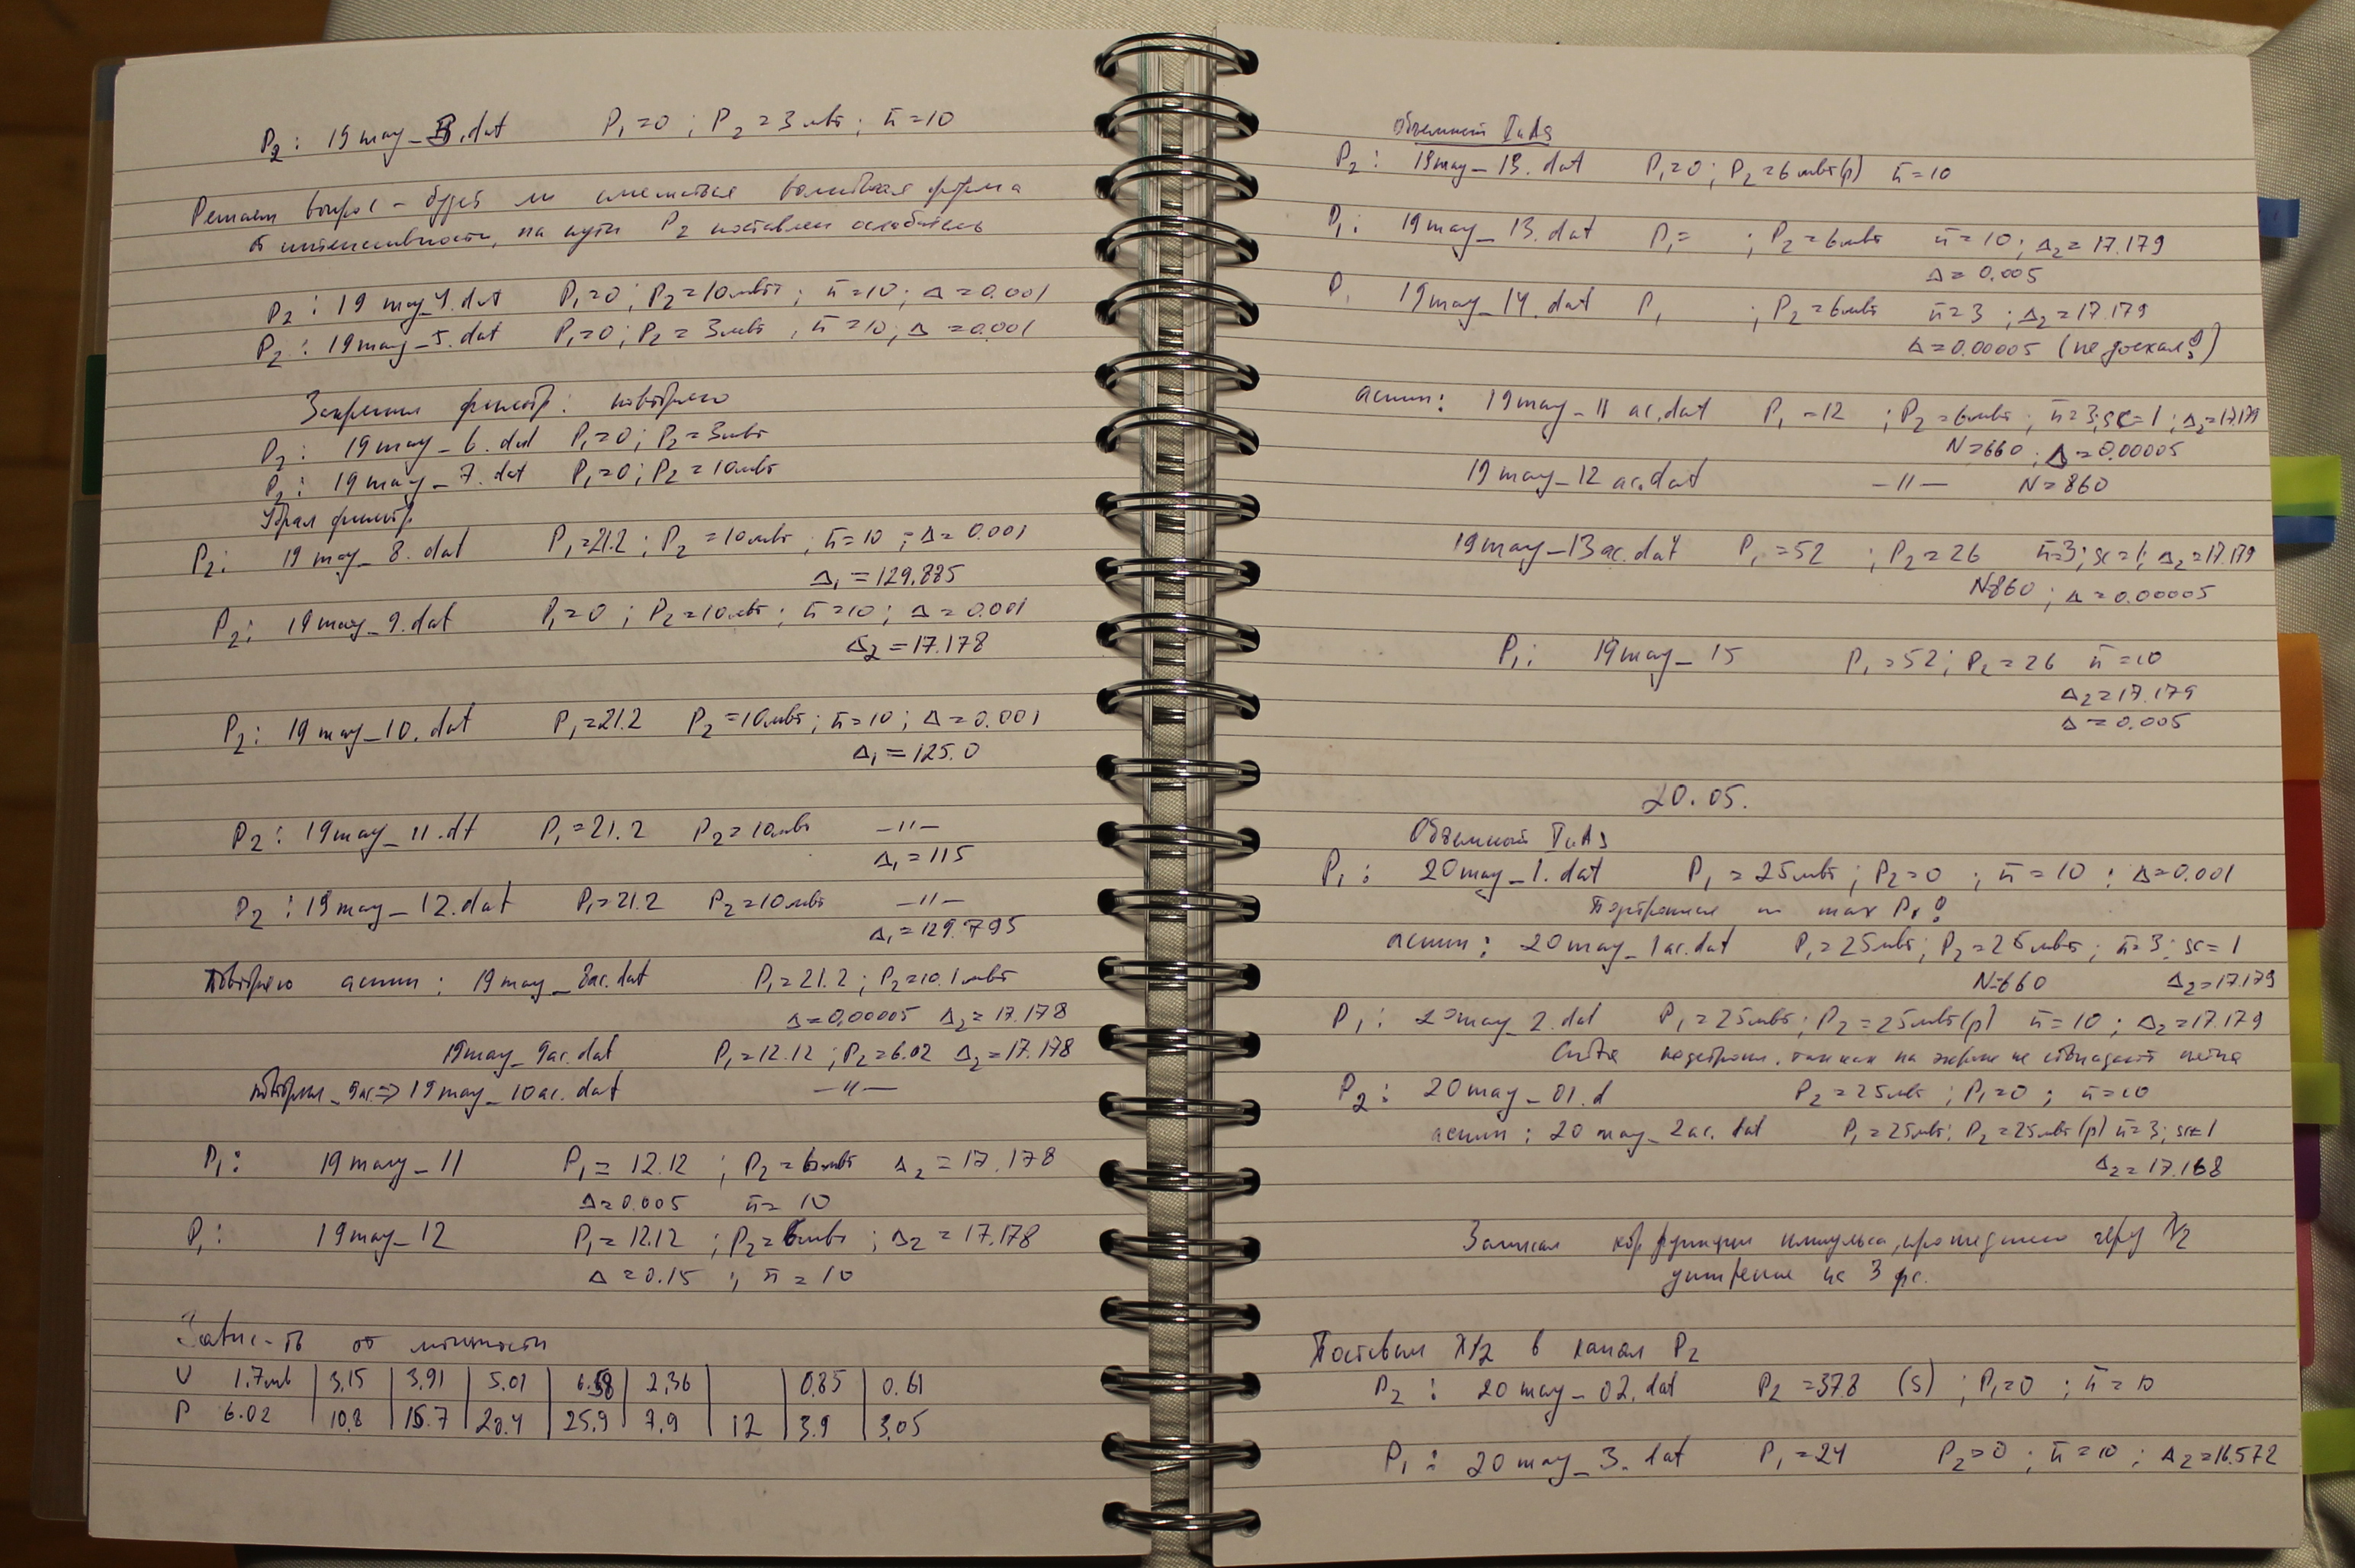 P₂: 19may_3.dat P₁=0; P₂=3мВт; n̄=10
Решаем вопрос - будет ли сместься волновая форма
от интенсивности, на пути P₂ поставлен ослабитель
P₂: 19may_4.dat P₁=0; P₂=10мВт; n̄=10; Δ=0.001
P₂: 19may_5.dat P₁=0; P₂=3мВт, n̄=10; Δ=0.001
Закрепили фильтр: повторяю
P₂: 19may_6.dat P₁=0; P₂=3мВт
P₂: 19may_7.dat P₁=0; P₂=10мВт
Убрал фильтр
P₂: 19may_8.dat P₁=21.2; P₂=10мВт; n̄=10; Δ=0.001
Δ₁=129.885
P₂: 19may_9.dat P₁=0; P₂=10мВт; n̄=10; Δ=0.001
Δ₂=17.178
P₂: 19may_10.dat P₁=21.2 P₂=10мВт; n̄=10; Δ=0.001
Δ₁=125.0
P₂: 19may_11.dt P₁=21.2 P₂=10мВт —"—
Δ₁=115
P₂: 19may_12.dat P₁=21.2 P₂=10мВт —"—
Δ₁=129.795
Повторяю асимм: 19may_8ac.dat P₁=21.2; P₂=10.1мВт
Δ=0.00005 Δ₂=17.178
19may_9ac.dat P₁=12.12; P₂=6.02 Δ₂=17.178
повторил_9ac⇒19may_10ac.dat —"—
P₁: 19may_11 P₁=12.12; P₂=6мВт Δ₂=17.178
Δ=0.005 n̄=10
P₁: 19may_12 P₁=12.12; P₂=6мВт; Δ₂=17.178
Δ=0.15; n̄=10
Завис-ть от мощности
U 1.7мВ | 3.15 | 3.91 | 5.01 | 6.58 | 2.36 | | 0.85 | 0.61
P 6.02 | 10.8 | 15.7 | 20.4 | 25.9 | 7.9 | 12 | 3.9 | 3.05
Объемный GaAs
P₂: 19may_13.dat P₁=0; P₂=6мВт(p) n̄=10
P₁: 19may_13.dat P₁= ; P₂=6мВт n̄=10; Δ₂=17.179
Δ=0.005
P₁ 19may_14.dat P₁ ; P₂=6мВт n̄=3; Δ₂=17.179
Δ=0.00005 (не доехал?)
асимм: 19may_11ac.dat P₁=12; P₂=6мВт; n̄=3; sc=1; Δ₂=17.179
N=660; Δ=0.00005
19may_12ac.dat —"— N=860
19may_13ac.dat P₁=52; P₂=26 n̄=3; sc=1; Δ₂=17.179
N=860; Δ=0.00005
P₁: 19may_15 P₁=52; P₂=26 n̄=10
Δ₂=17.179
Δ=0.005
20.05.
Объемный GaAs
P₁: 20may_1.dat P₁=25мВт; P₂=0; n̄=10; Δ=0.001
на max P₁!
асимм: 20may_1ac.dat P₁=25мВт; P₂=25мВт; n̄=3; sc=1
N=660 Δ₂=17.179
P₁: 20may_2.dat P₁=25мВт; P₂=25мВт(p) n̄=10; Δ₂=17.179
подстроил, так как на экране не совпадают пятна
P₂: 20may_01.d P₂=25мВт; P₁=0; n̄=10
асимм: 20may_2ac.dat P₁=25мВт; P₂=25мВт(p) n̄=3; sc=1
Δ₂=17.168
Записал кор. функции импульса, прошедшего через λ/2
уширение на 3 фс.
Поставил λ/2 в канал P₂
P₂: 20may_02.dat P₂=37.8 (s); P₁=0; n̄=10
P₁: 20may_3.dat P₁=24 P₂=0; n̄=10; Δ₂=16.572